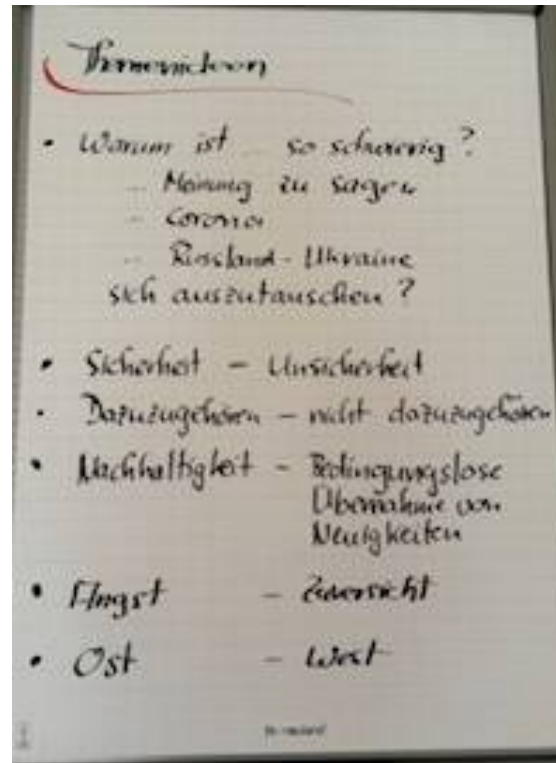 Themenideen
• Warum ist so schwierig?
- Meinung zu sagen
- Corona
- Russland - Ukraine
sich auszutauschen?
• Sicherheit - Unsicherheit
• Dazuzugehören - nicht dazuzugehören
• Nachhaltigkeit - Bedingungslose
Übernahme von
Neuigkeiten
• Angst - Zuversicht
• Ost - West